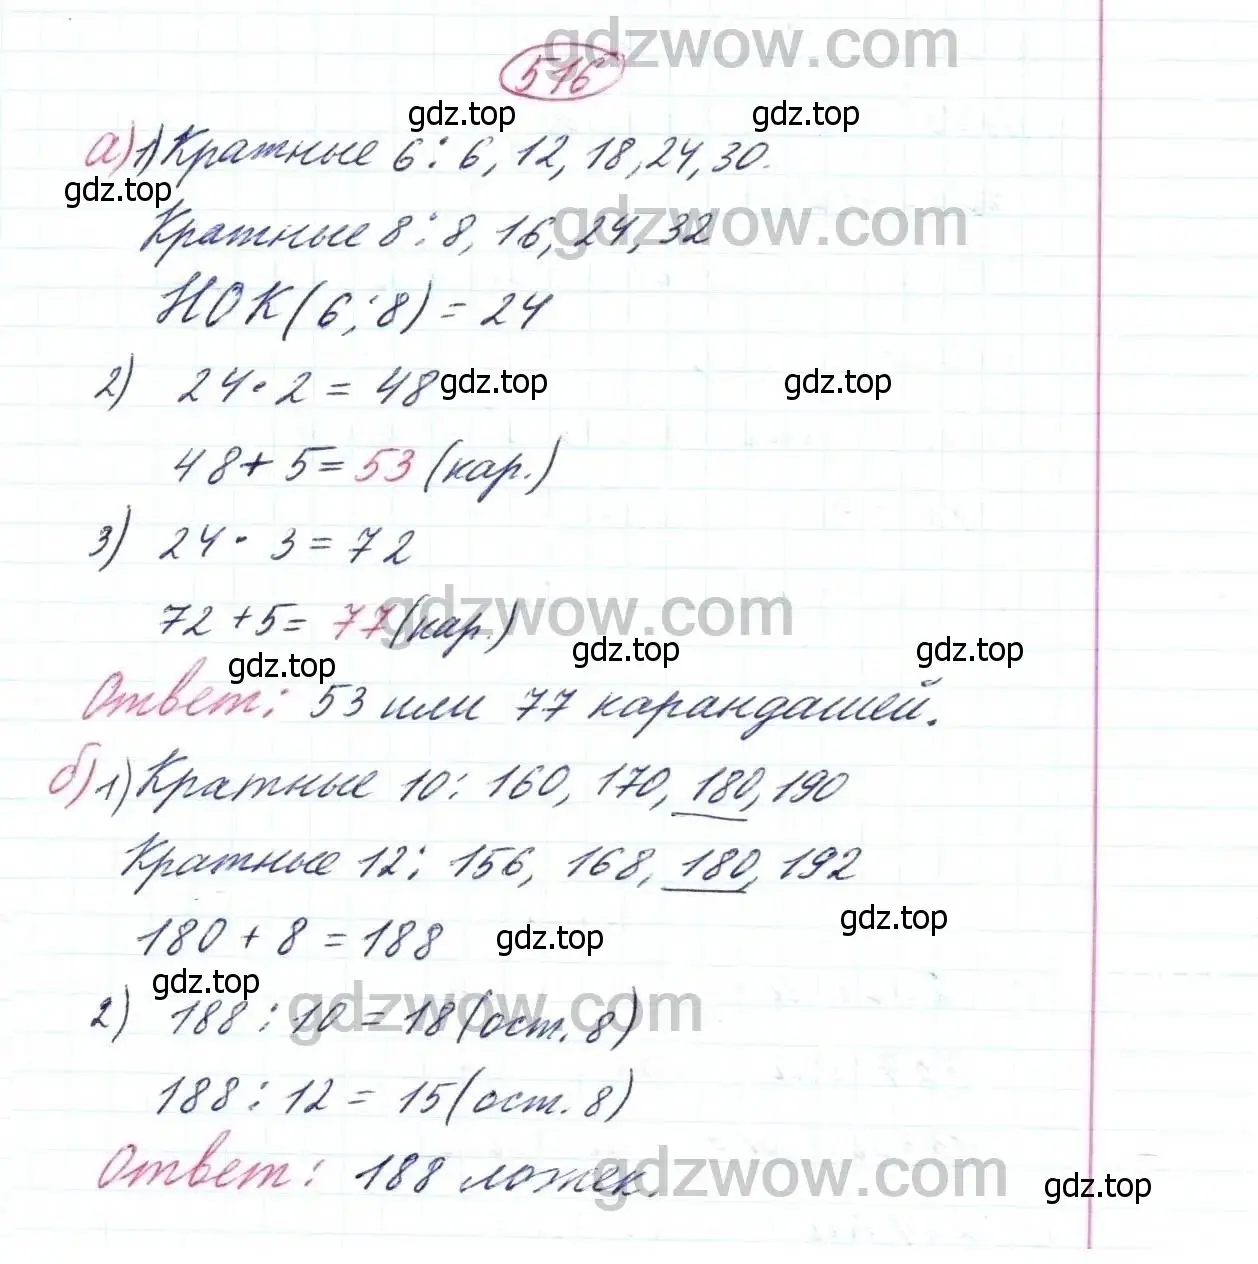 gdzwow.com
576
gdz.top gdz.top
а) 1) Кратные 6: 6, 12, 18, 24, 30.
gdz.top
gdzwow.com
Кратные 8: 8, 16, 24, 32
НОК(6;8) = 24
2) 24 · 2 = 48
gdz.top gdz.top
48 + 5 = 53 (кар.)
3) 24 · 3 = 72
gdzwow.com
72 + 5 = 77 (кар.)
gdz.top gdz.top gdz.top
Ответ: 53 или 77 карандашей.
б) 1) Кратные 10: 160, 170, 180, 190
Кратные 12: 156, 168, 180, 192
180 + 8 = 188
gdz.top gdz.top
gdz.top
gdzwow.com
2) 188 : 10 = 18 (ост. 8)
188 : 12 = 15 (ост. 8)
gdzwow.com
Ответ: 188 ложек.
gdz.top